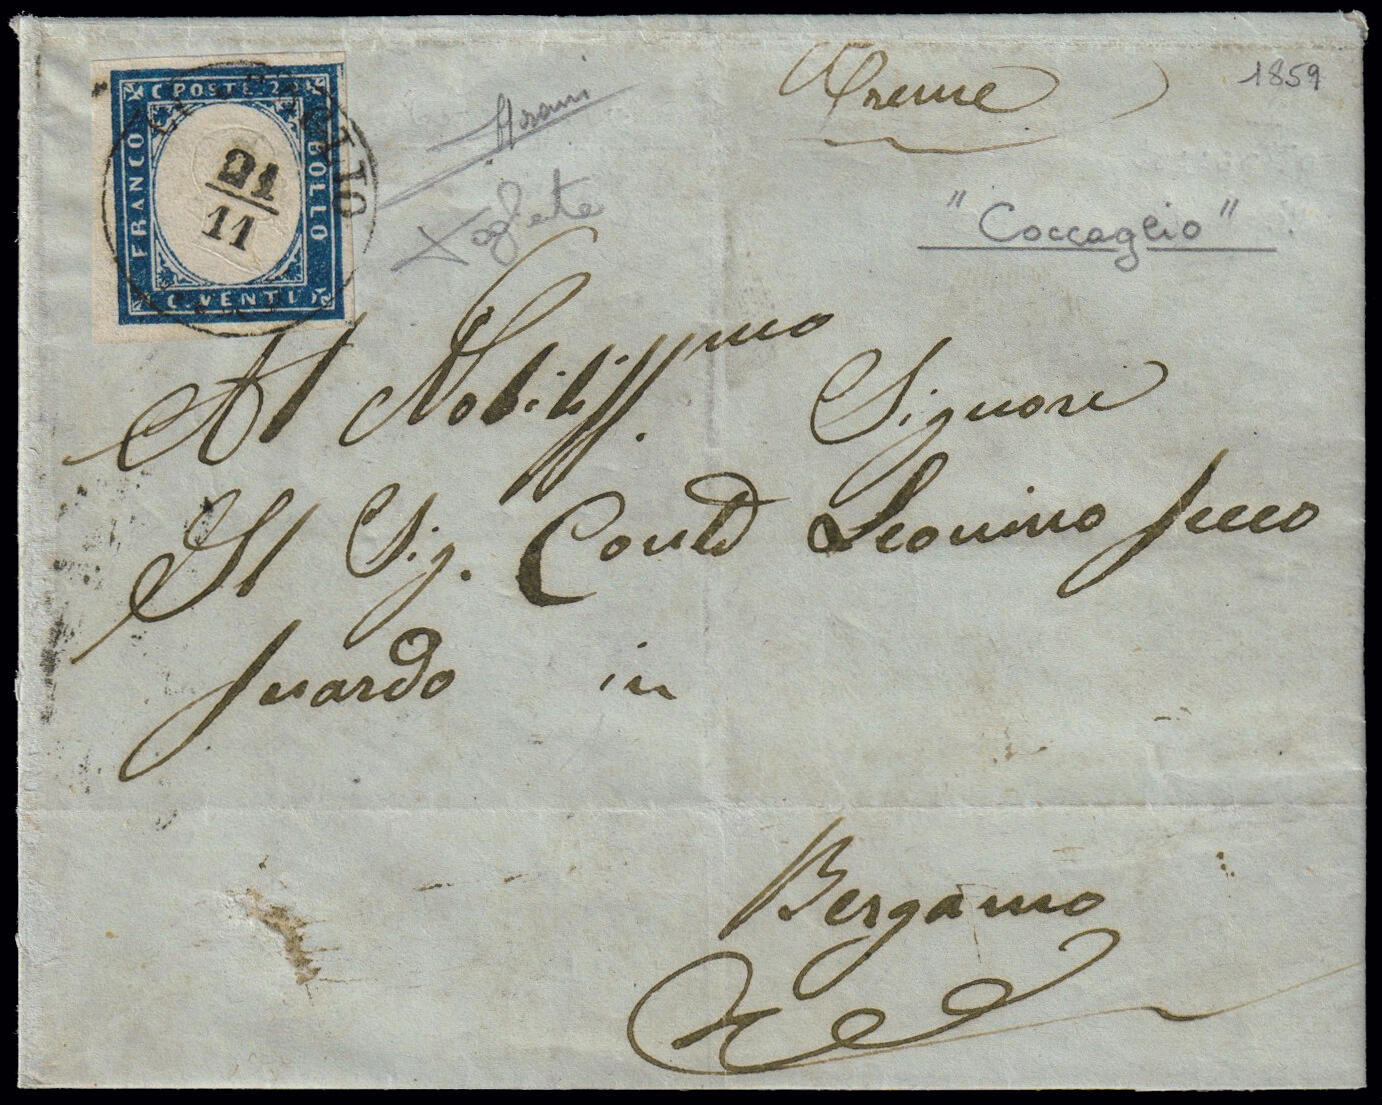 C POSTE 20
FRANCO
BOLLO
C. VENTI
21
11
1859
"Coccaglio"
Al Nobiliss.mo Signore
Il Sig. Conte Leonino Secco
Suardo in
Bergamo